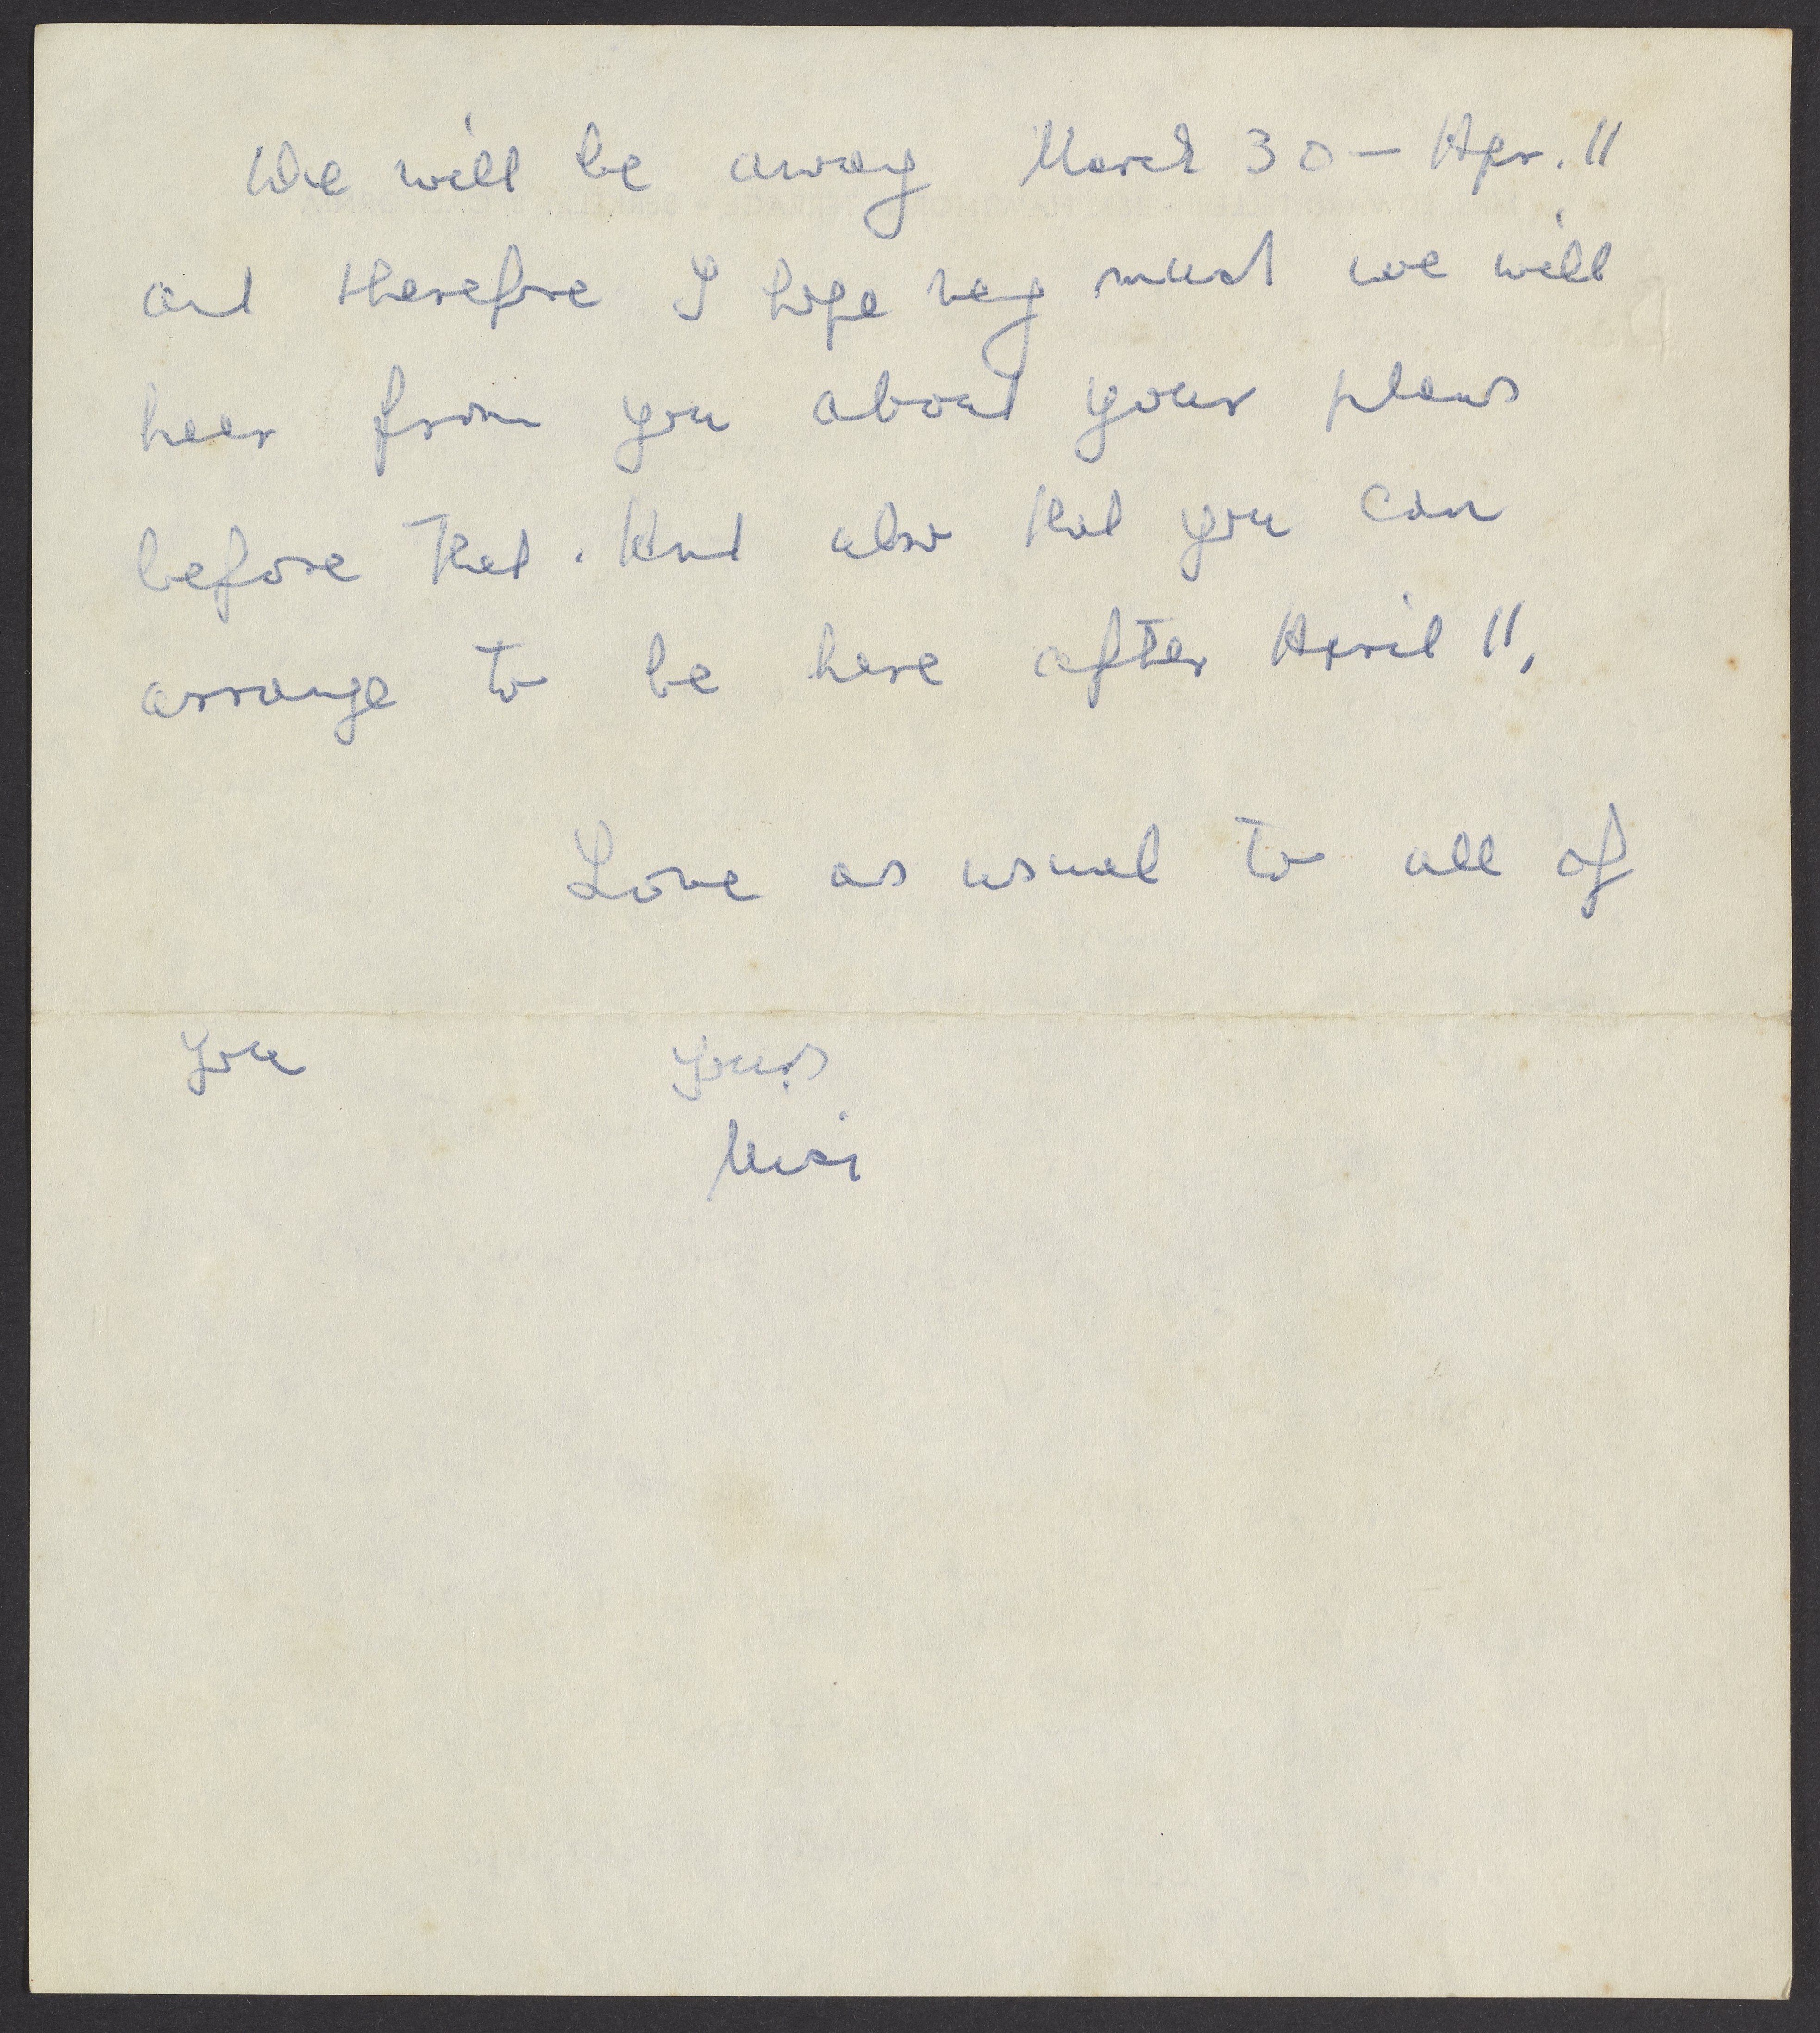 We will be away March 30 – Apr. 11
and therefore I hope very much we will
hear from you about your plans
before that. And also that you can
arrange to be here after April 11.
Love as usual to all of
you yours
Mici